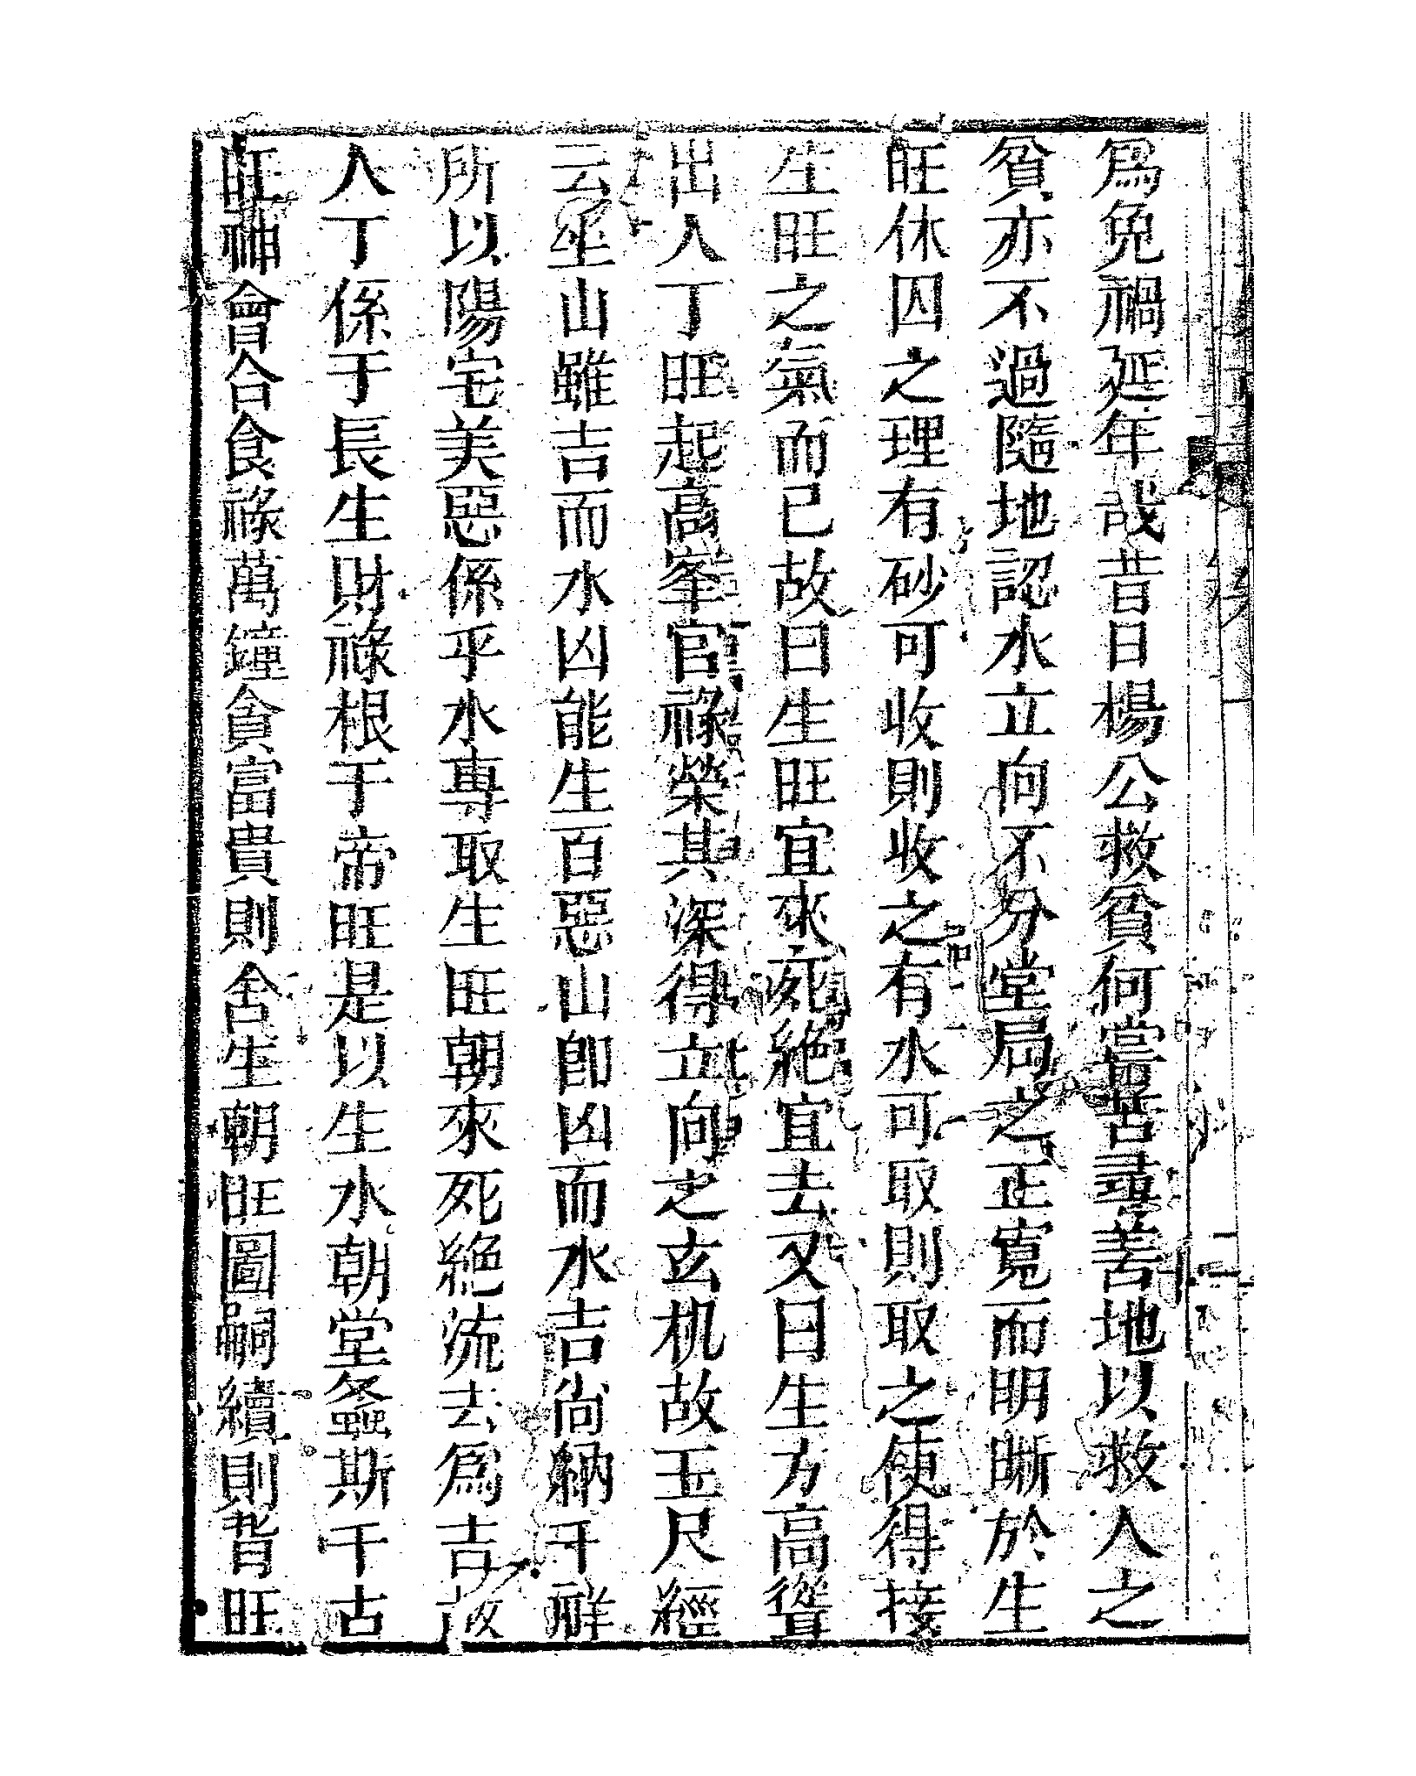 爲免禍延年哉昔日楊公救貧何嘗苦尋善地以救人之
貧亦不過隨地認水立向不分堂局之正寛而明晰於生
旺休囚之理有砂可收則收之有水可取則取之使得接
生旺之氣而已故曰生旺宜來死絶宜去又曰生方高聳
出人丁旺起高峯官祿榮其深得立向之玄机故玉尺經
云坐山雖吉而水凶能生百惡山即凶而水吉尚納千祥
所以陽宅美惡係乎水專取生旺朝來死絶流去爲吉故
人丁係于長生財祿根于帝旺是以生水朝堂螽斯千古
旺神會合食祿萬鐘貪富貴則舍生朝旺圖嗣續則背旺